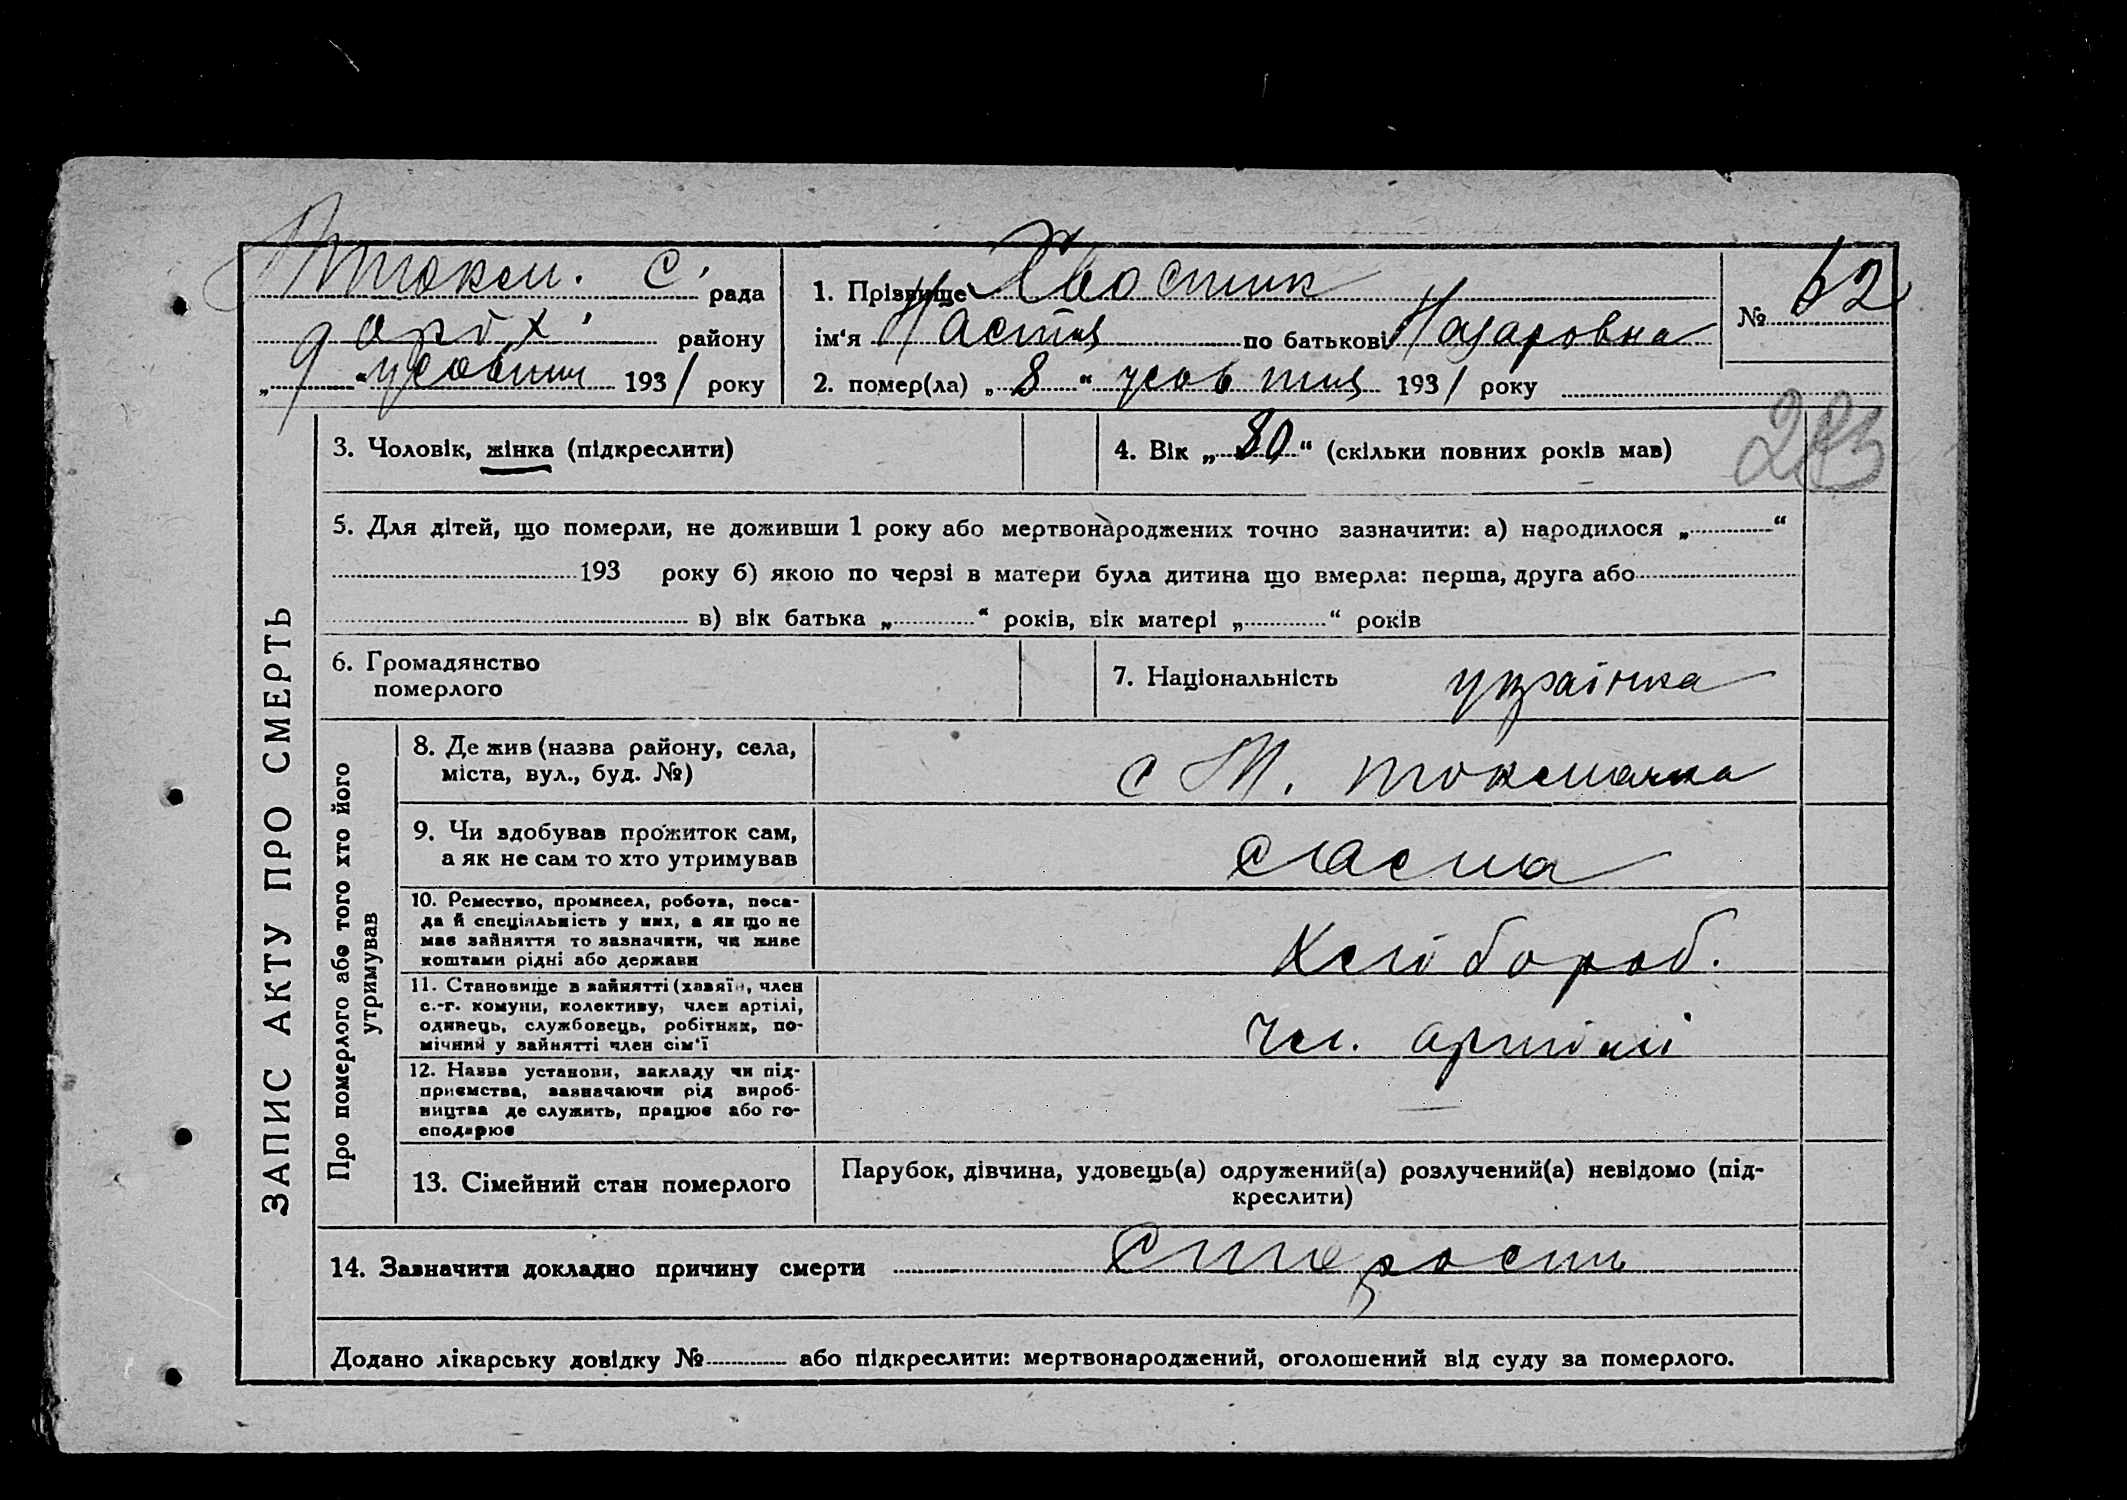 Мтокм. С. рада
оріх. району
„9“ жовтня 1931 року
1. Прізвище Хвостик
ім‘я Настя по батькові Назаровна
2. помер(ла) „8“ жовтня 1931 року
№ 62
283
ЗАПИС АКТУ ПРО СМЕРТЬ
3. Чоловік, жінка (підкреслити)
4. Вік „80“ (скільки повних років мав)
5. Для дітей, що померли, не доживши 1 року або мертвонароджених точно зазначити: а) народилося „ “
193 року б) якою по черзі в матери була дитина що вмерла: перша, друга або
в) вік батька „ “ років, вік матері „ “ років
6. Громадянство
померлого
7. Національність українка
Про померлого або того хто його
утримував
8. Де жив (назва району, села,
міста, вул., буд. №)
с М. токмачка
9. Чи здобував прожиток сам,
а як не сам то хто утримував
сама
10. Ремество, промисел, робота, поса-
да й спеціяльність у них, а як що не
мав зайняття то зазначити, чи живе
коштами рідні або держави
Хлібороб.
11. Становище в зайнятті (хазяїн, член
с.-г. комуни, колективу, член артілі,
одинець, службовець, робітник, по-
мічний у зайнятті член сім‘ї
чл. артілі
12. Назва установи, закладу чи під-
приємства, зазначаючи рід вироб-
ництва де служить, працює або го-
сподарює
13. Сімейний стан померлого
Парубок, дівчина, удовець(а) одружений(а) розлучений(а) невідомо (під-
креслити)
14. Зазначити докладно причину смерти старость
Додано лікарську довідку № або підкреслити: мертвонароджений, оголошений від суду за померлого.